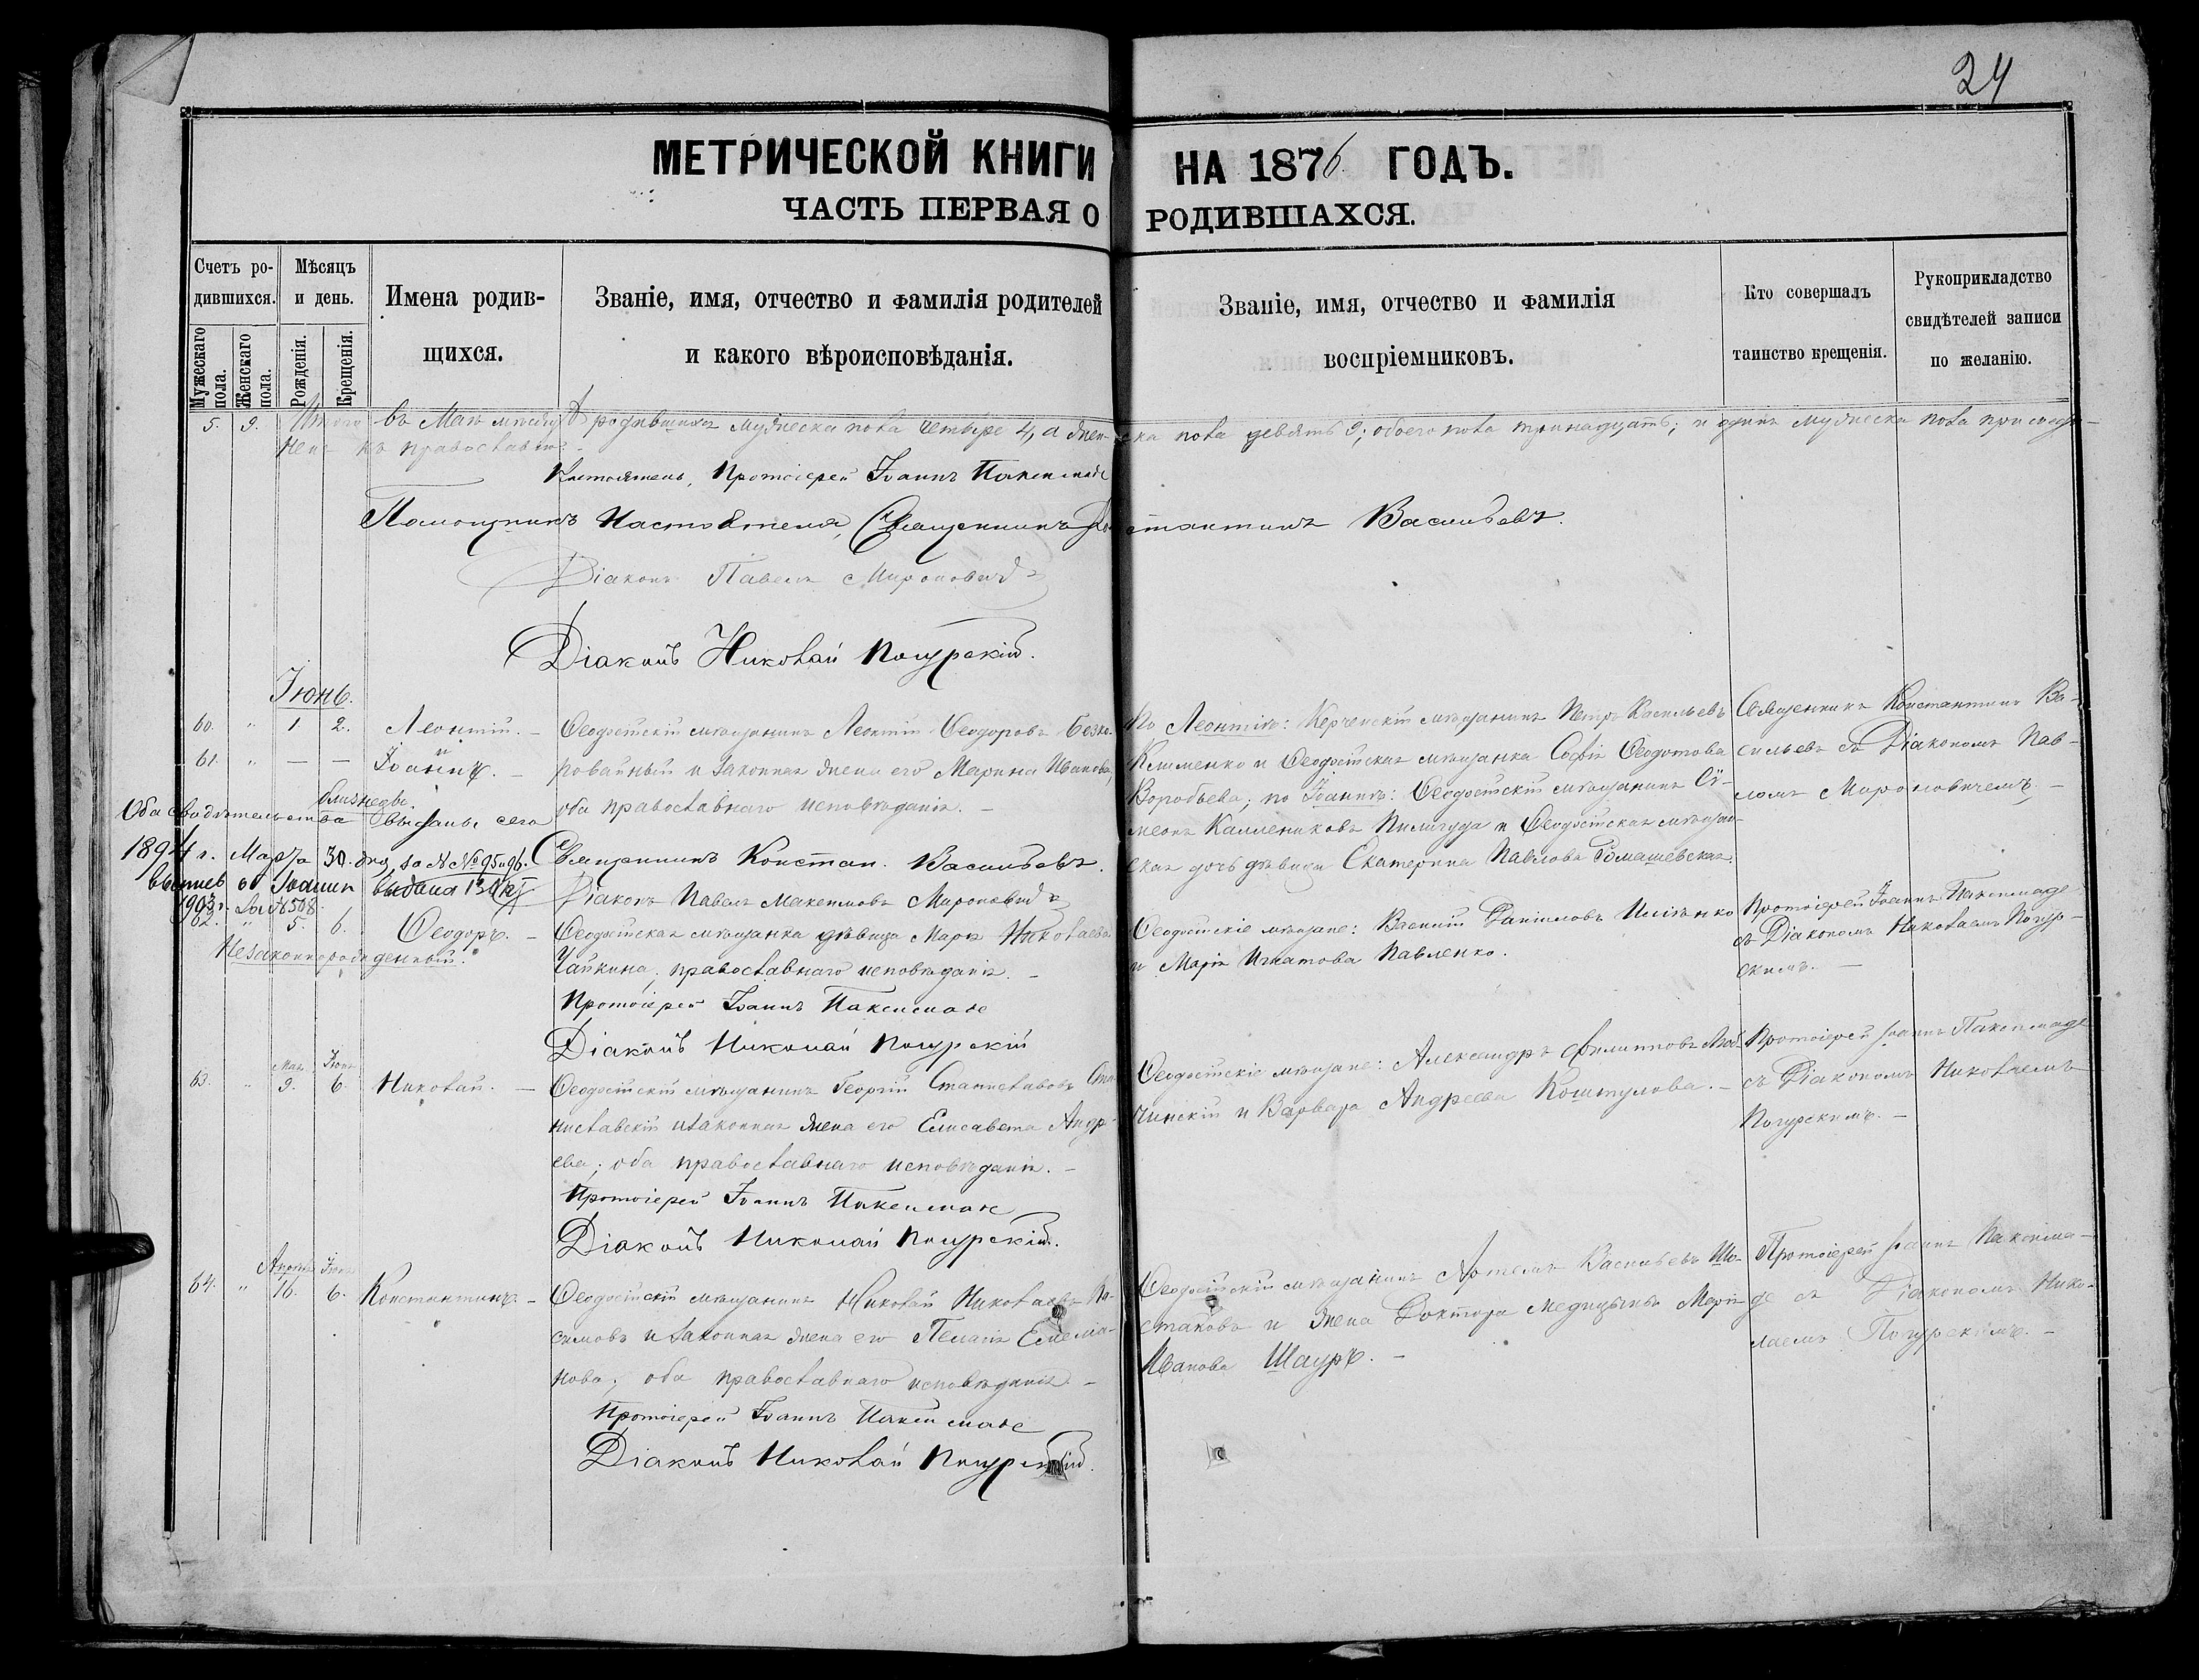 24
МЕТРИЧЕСКОЙ КНИГИ НА 1876 ГОДЪ.
ЧАСТЬ ПЕРВАЯ О РОДИВШАХСЯ.
Счетъ родившихся.
Мужескаго пола.
Женскаго пола.
Мѣсяцъ и день.
Рожденія.
Крещенія.
Имена родив-
щихся.
Званіе, имя, отчество и фамилія родителей
и какого вѣроисповѣданія.
Званіе, имя, отчество и фамилія
воспріемниковъ.
Кто совершалъ
таинство крещенія.
Рукоприкладство
свидѣтелей записи
по желанію.
5. 9. Итого въ Маѣ мѣсяцѣ родившихся мужеска пола четыре 4, а женска пола девять 9; обоего пола тринадцать; и одинъ мужеска пола присоеди-
ненъ къ православію.
Настоятель, Протоіерей Іоаннъ
Помощникъ Настоятеля, Священникъ Константинъ Васильевъ.
Діаконъ Павелъ Мироновичъ
Діаконъ Николай Погурскій.
Іюнь.
60. " 1 2. Леонтій. –
61. " — — и Іоаннъ. –
близнецы.
Ѳеодосійскій мѣщанинъ Леонтій Ѳеодоровъ Безко-
ровайный и законная жена его Марина Иванова,
оба православнаго исповѣданія. –
По Леонтіѣ: Керченскій мѣщанинъ Петръ Васильевъ
Клименко и Ѳеодосійская мѣщанка Софія Ѳеодотова
Воробьева; по Іоаннѣ: Ѳеодосійскій мѣщанинъ Си-
меонъ Каллениковъ и Ѳеодосійская мѣщан-
ская дочь дѣвица Екатерина Павлова Ромашевская.
Священникъ Константинъ Ва-
сильевъ съ Діакономъ Пав-
ломъ Мироновичемъ. –
Оба свидѣтельства выданы сего
1894 г. Марта 30 дня за №№ 95 и 96.
объ Іоаннѣ выдана
1903 г. за № 508.
Священникъ Констан. Васильевъ.
Діаконъ Павелъ Максимовъ Мироновичъ
62. " 5. 6. Ѳеодоръ. –
Незаконнорожденный.
Ѳеодосійская мѣщанка дѣвица Марія Николаева
Чайкина, православнаго исповѣданія. –
Ѳеодосійскіе мѣщане: Василій Даніиловъ
и Марія Игнатова Павленко.
Протоіерей Іоаннъ
съ Діакономъ Николаемъ Погур-
скимъ. –
Протоіерей Іоаннъ
Діаконъ Николай Погурскій
63. " Мая 9. Іюня 6. Николай. –
Ѳеодосійскій мѣщанинъ Георгій Станиславовъ Ста-
ниславскій и законная жена его Елисавета Андре-
ева; оба православнаго исповѣданія. –
Ѳеодосійскіе мѣщане: Александръ Филипповъ
и Варвара Андреева Коштулова. –
Протоіерей Іоаннъ
съ Діакономъ Николаемъ
Погурскимъ. –
Протоіерей Іоаннъ
Діаконъ Николай Погурскій.
64. " Апрѣля 16. Іюня 6. Константинъ. –
Ѳеодосійскій мѣщанинъ Николай Николаевъ
и законная жена его Пелагія Емелія-
нова; оба православнаго исповѣданія. –
Ѳеодосійскій мѣщанинъ Артемъ Васильевъ Шо-
стаковъ и жена Доктора медицины Марія
Иванова Шауръ. –
Протоіерей Іоаннъ
съ Діакономъ Нико-
лаемъ Погурскимъ. –
Протоіерей Іоаннъ
Діаконъ Николай Погурскій.